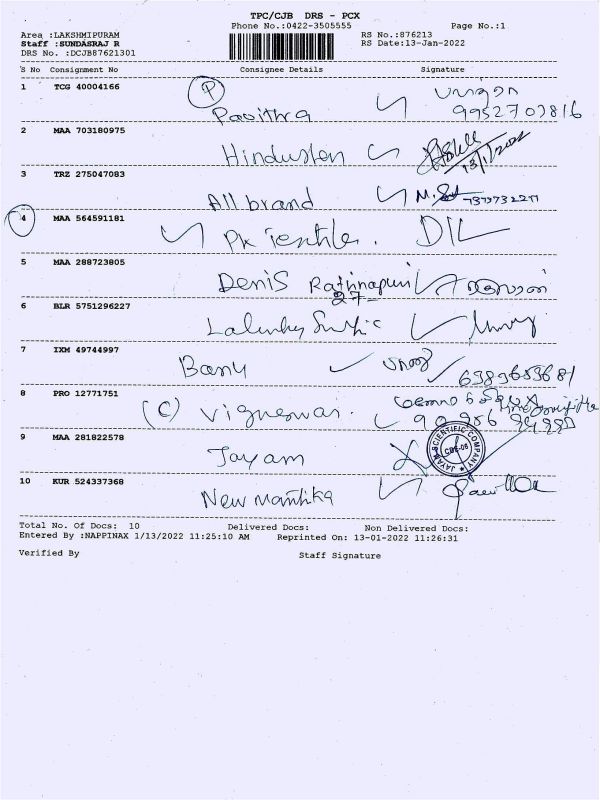 TPC/CJB DRS - PCX
Phone No.:0422-3505555 Page No.:1
Area :LAKSHMIPURAM RS No.:876213
Staff :SUNDASRAJ R RS Date:13-Jan-2022
DRS No. :DCJB87621301
S No Consignment No Consignee Details Signature
1 TCG 40004166 P Pavithra
9952707816
2 MAA 703180975 Hindusten
3 TRZ 275047083 All brand
4 MAA 564591181 PK Textile. DIL
5 MAA 288723805 Denis Rathnapuri
27-
6 BLR 5751296227
7 IXM 49744997 Banu
8 PRO 12771751 (C) Vigneswar.
9 MAA 281822578 Jayam
JAYAM SCIENTIFIC COMPANY
10 KUR 524337368 New mantika
Total No. Of Docs: 10 Delivered Docs: Non Delivered Docs:
Entered By :NAPPINAX 1/13/2022 11:25:10 AM Reprinted On: 13-01-2022 11:26:31
Verified By Staff Signature